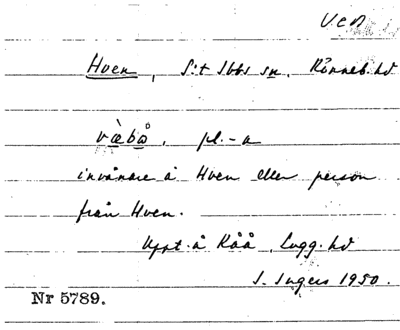 Hven, S:t Ibbs sn, Rönneb. hd
væ̀bo̊, pl. -a
invånare å Hven eller person
från Hven.
Uppt. å Råå, Lugg. hd
I. Ingers 1950.
Nr 5789.